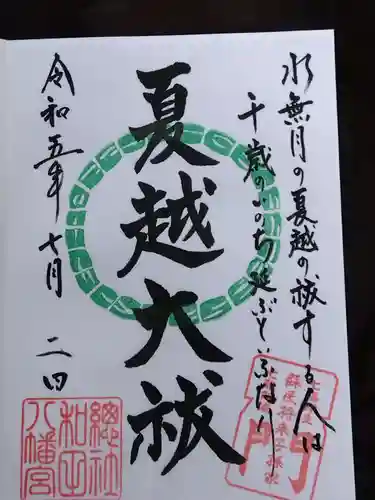 水無月の夏越の祓する人は
千歳のいのち延ぶといふなり
夏越大祓
令和五年七月 二日
總社
和田
八幡宮
蘇民将来子孫家
門